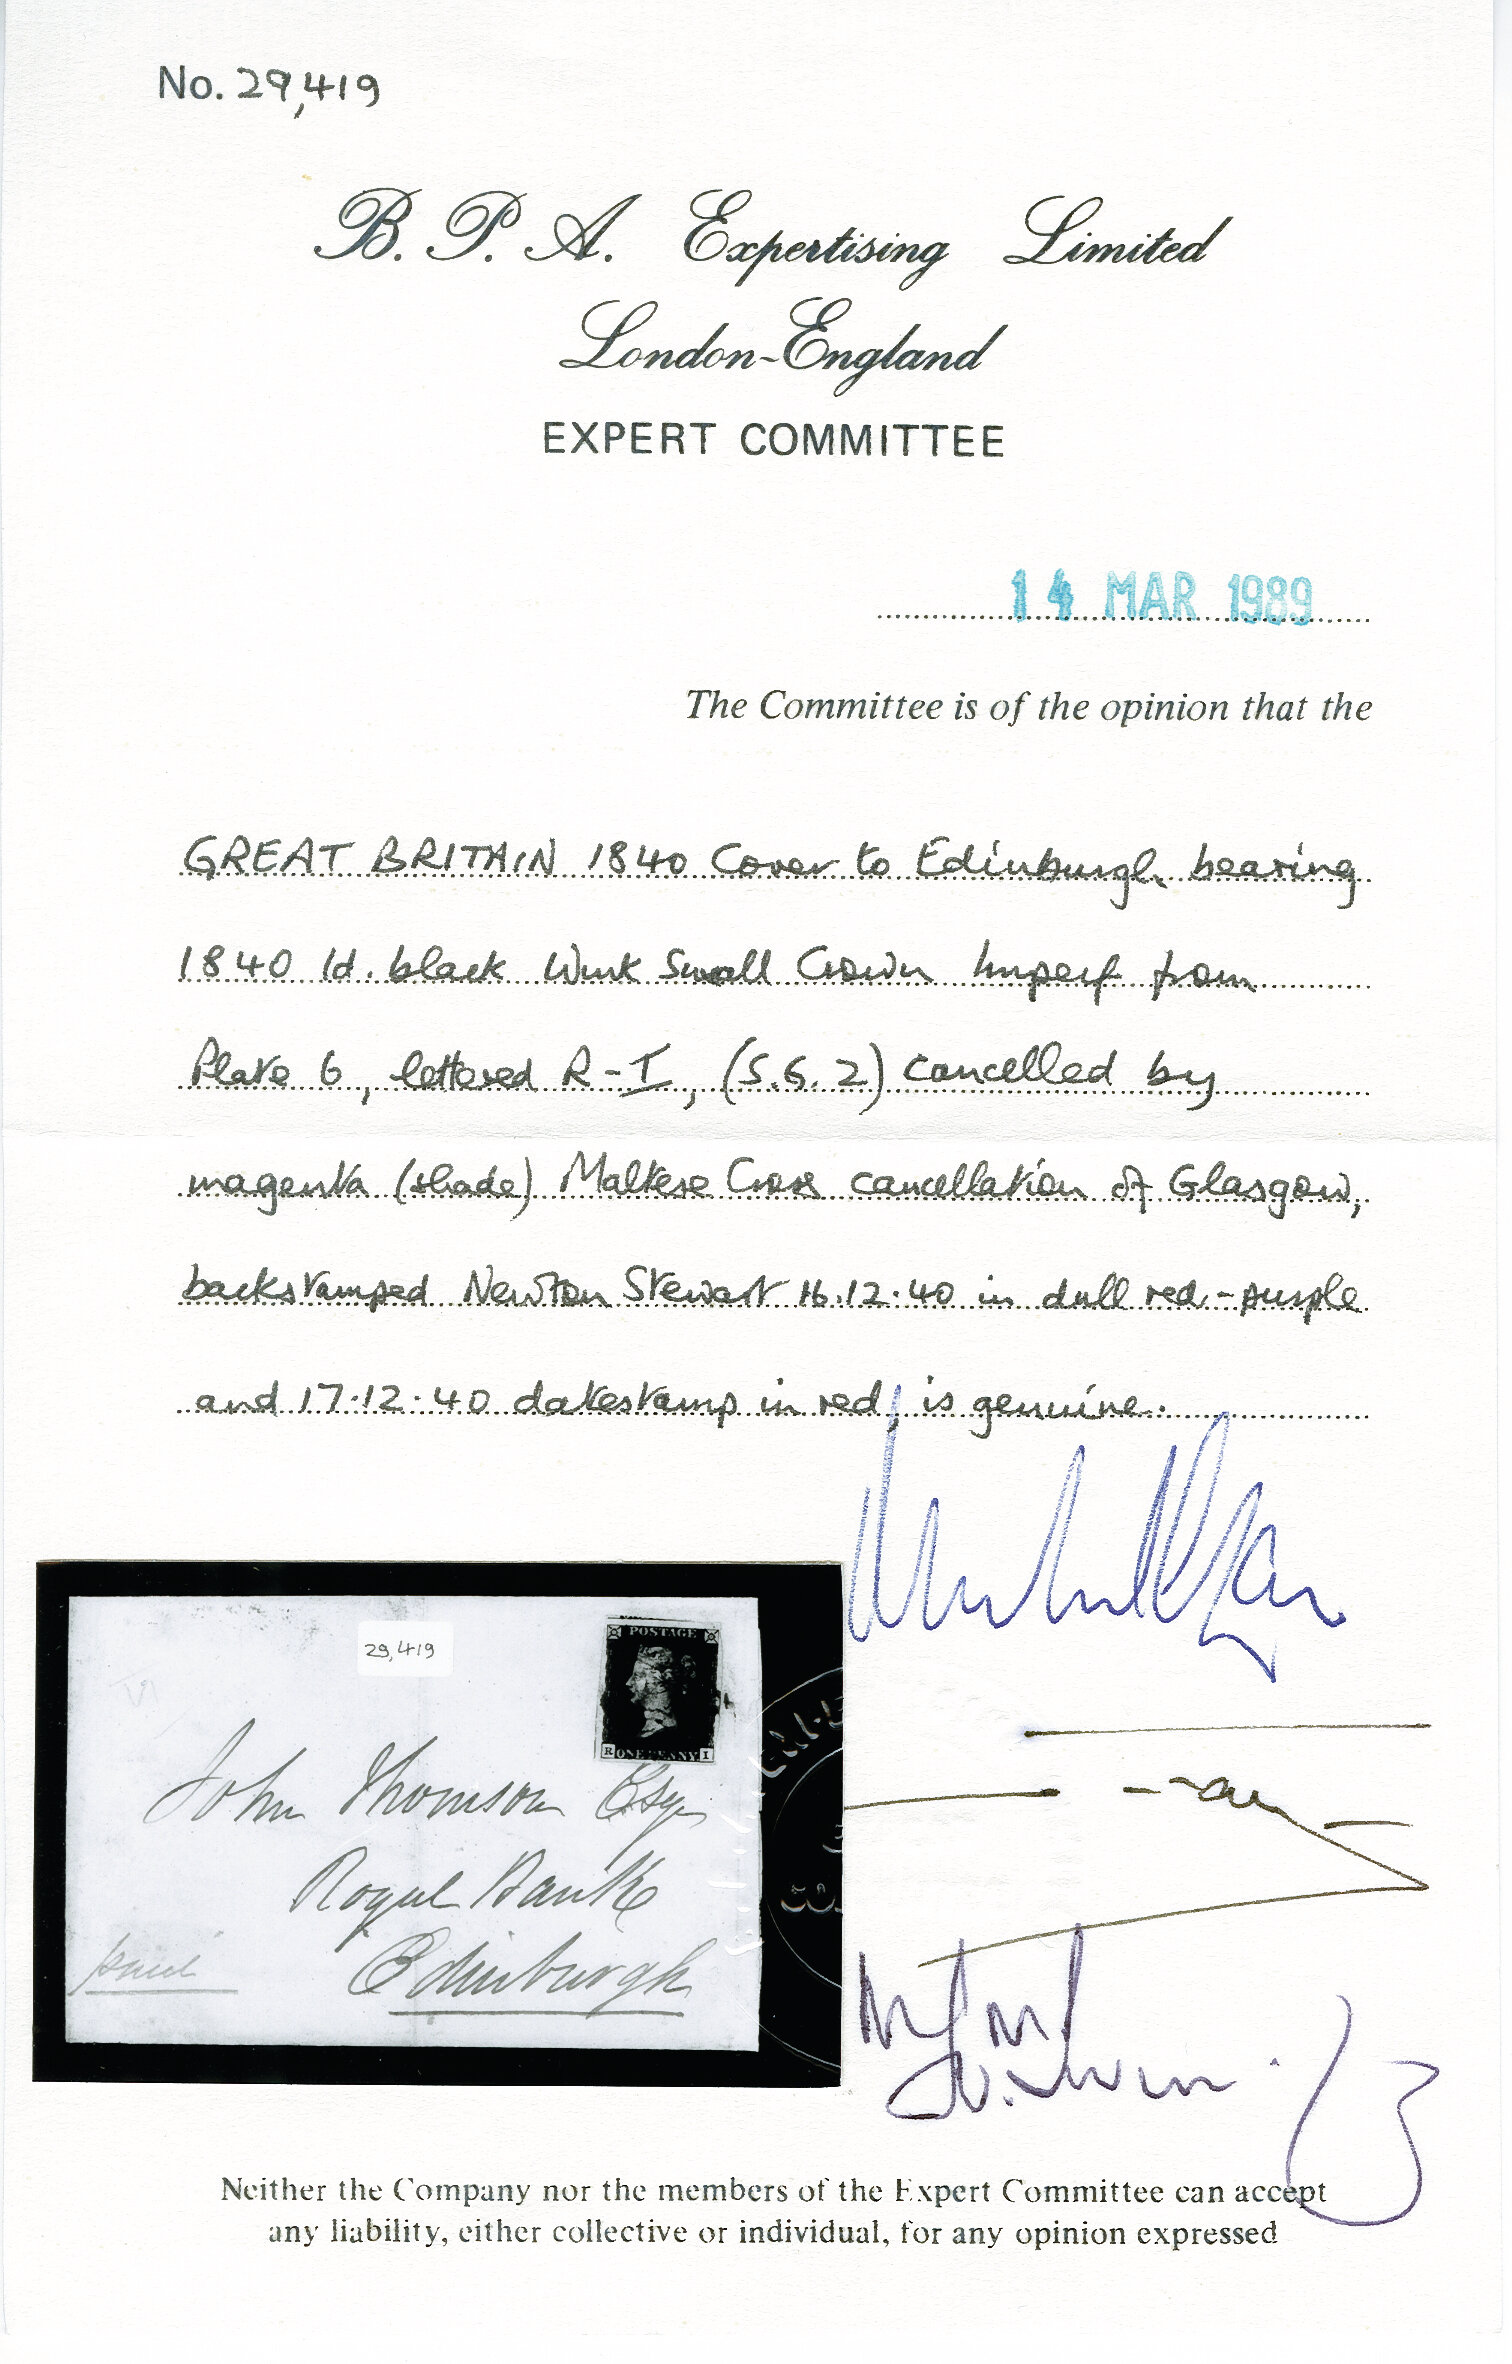 No. 29,419
B. P. A. Expertising Limited
London-England
EXPERT COMMITTEE
14 MAR 1989
The Committee is of the opinion that the
GREAT BRITAIN 1840 Cover to Edinburgh bearing
1840 1d. black Wmk Small Crown Imperf from
Plate 6, lettered R-I, (S.G. 2) cancelled by
magenta (shade) Maltese Cross cancellation of Glasgow,
backstamped Newton Stewart 16.12.40 in dull red-purple
and 17.12.40 datestamp in red, is genuine.
29,419
POSTAGE
R ONE PENNY I
John Thomson Esqr
Royal Bank
paid
Edinburgh
Neither the Company nor the members of the Expert Committee can accept
any liability, either collective or individual, for any opinion expressed